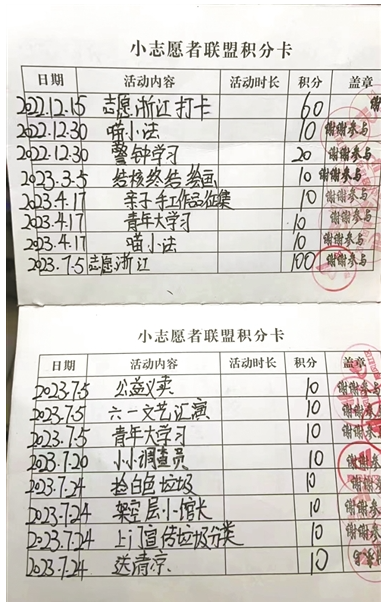 小志愿者联盟积分卡
日期 活动内容 活动时长 积分 盖章
2022.12.15 志愿浙江打卡 60 谢
2022.12.30 喵小法 10 谢谢参与
2022.12.30 警钟学习 20 谢谢参与
2023.3.5 结核终结绘画 10 谢谢参与
2023.4.17 亲子手工作品征集 10 谢谢参与
2023.4.17 青年大学习 10 谢谢参与
2023.4.17 喵小法 10 谢谢参与
2023.7.5 志愿浙江 100 谢谢参与
小志愿者联盟积分卡
日期 活动内容 活动时长 积分 盖章
2023.7.5 公益义卖 10 谢谢参与
2023.7.5 六一文艺汇演 10 谢谢参与
2023.7.5 青年大学习 10 谢谢参与
2023.7.20 小小调查员 10 谢谢参
2023.7.24 捡白色垃圾 10 谢谢参
2023.7.24 架空层小馆长 10 谢谢参
2023.7.24 上门宣传垃圾分类 10 谢谢参
2023.7.24 送清凉 10